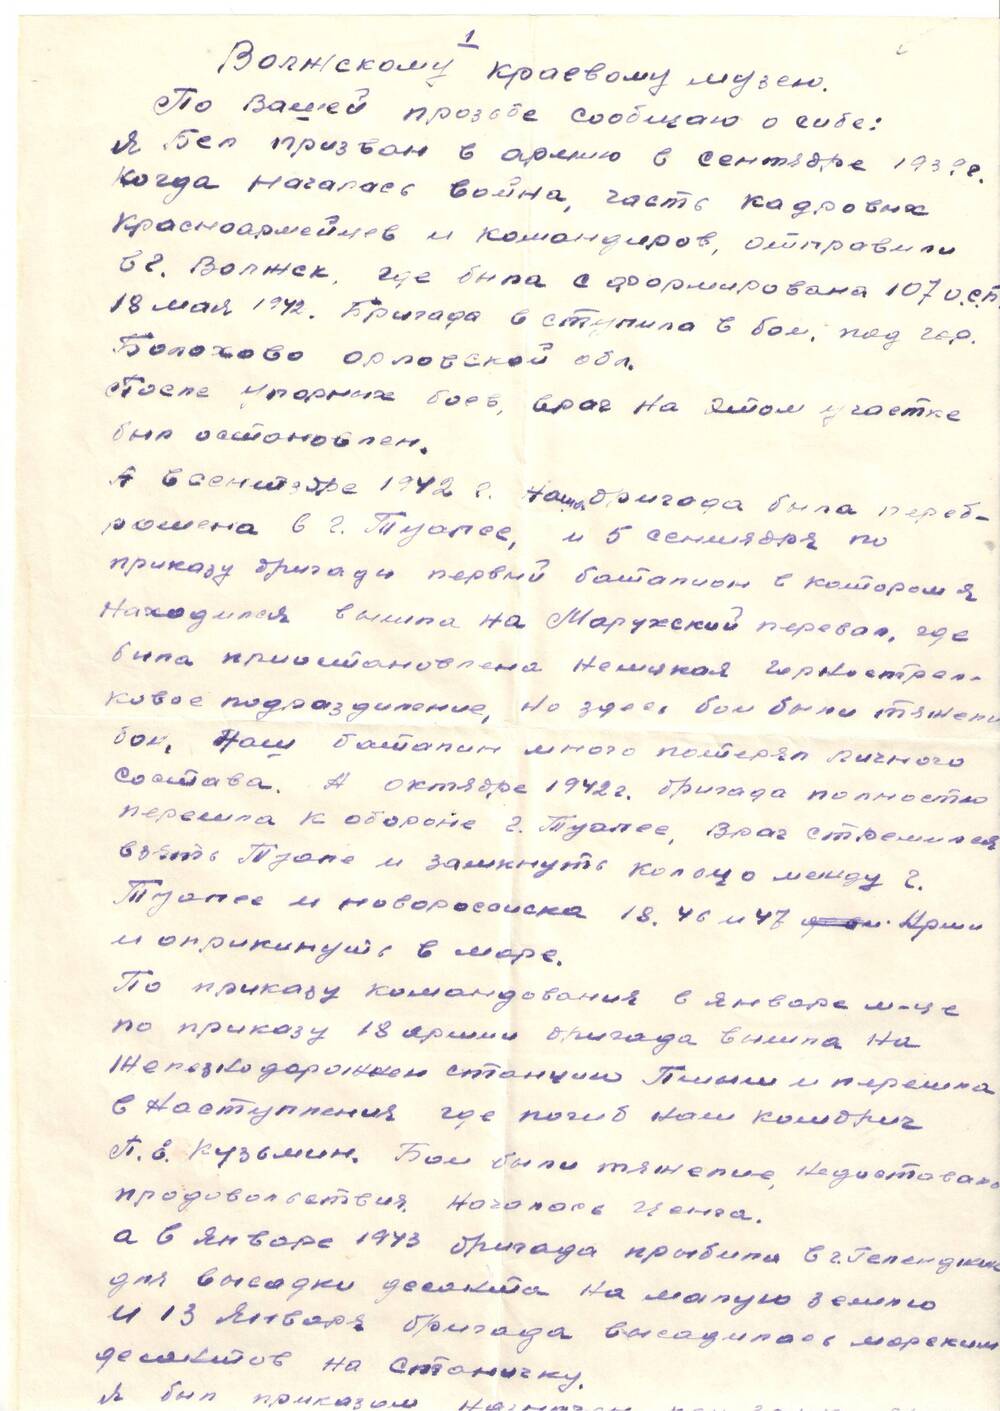 1
Волжскому краевому музею.
По Вашей прозьбе сообщаю о сибе:
Я Беп призван в армию в сентядре 1939г.
Когда началась война, часть кадровых
Красноармейцев и командиров, отправили
в г. Волжск, где была сформирована 107 о.с.б.
18 мая 1942. Бригада вступила в бой, под гор.
Болохово орловской обл.
После упорних боев, враг на этом участке
был остановлен.
А в сентядре 1942 г. наша бригада была переб-
рошена в г. Туапсе, и 5 сентября по
приказу бригады первый баталион в котором я
находился вышла на Марухский перевал, где
была приостановлена немцкая горнострел-
ковое подразделение, но здесь бои были тяжели
бои, Наш баталин много потерял личного
состава. А октядре 1942г. бригада полностю
перешла к обороне г. Туапсе, Враг стремился
взять Туапе и замкнуть кольцо между г.
Туапсе и новоросоиска 18. 46 и 47 Арми
и оприкинуть в море.
По приказу командования в январе м-це
по приказу 18 армии бригада вышла на
Железнодорожн станцию Пшыш и перешла
в наступления где погиб наш комбриг
П.Е. Кузьмин. Бои были тяжелие, недоставало
продовольствия. Началось Ценга.
а в январе 1943 бригада прыбила в г. Геленджик
для высадки десанта на малую землю
и 13 января бригада высадилась морским
десантов на Станичку.
Я был приказом назначен